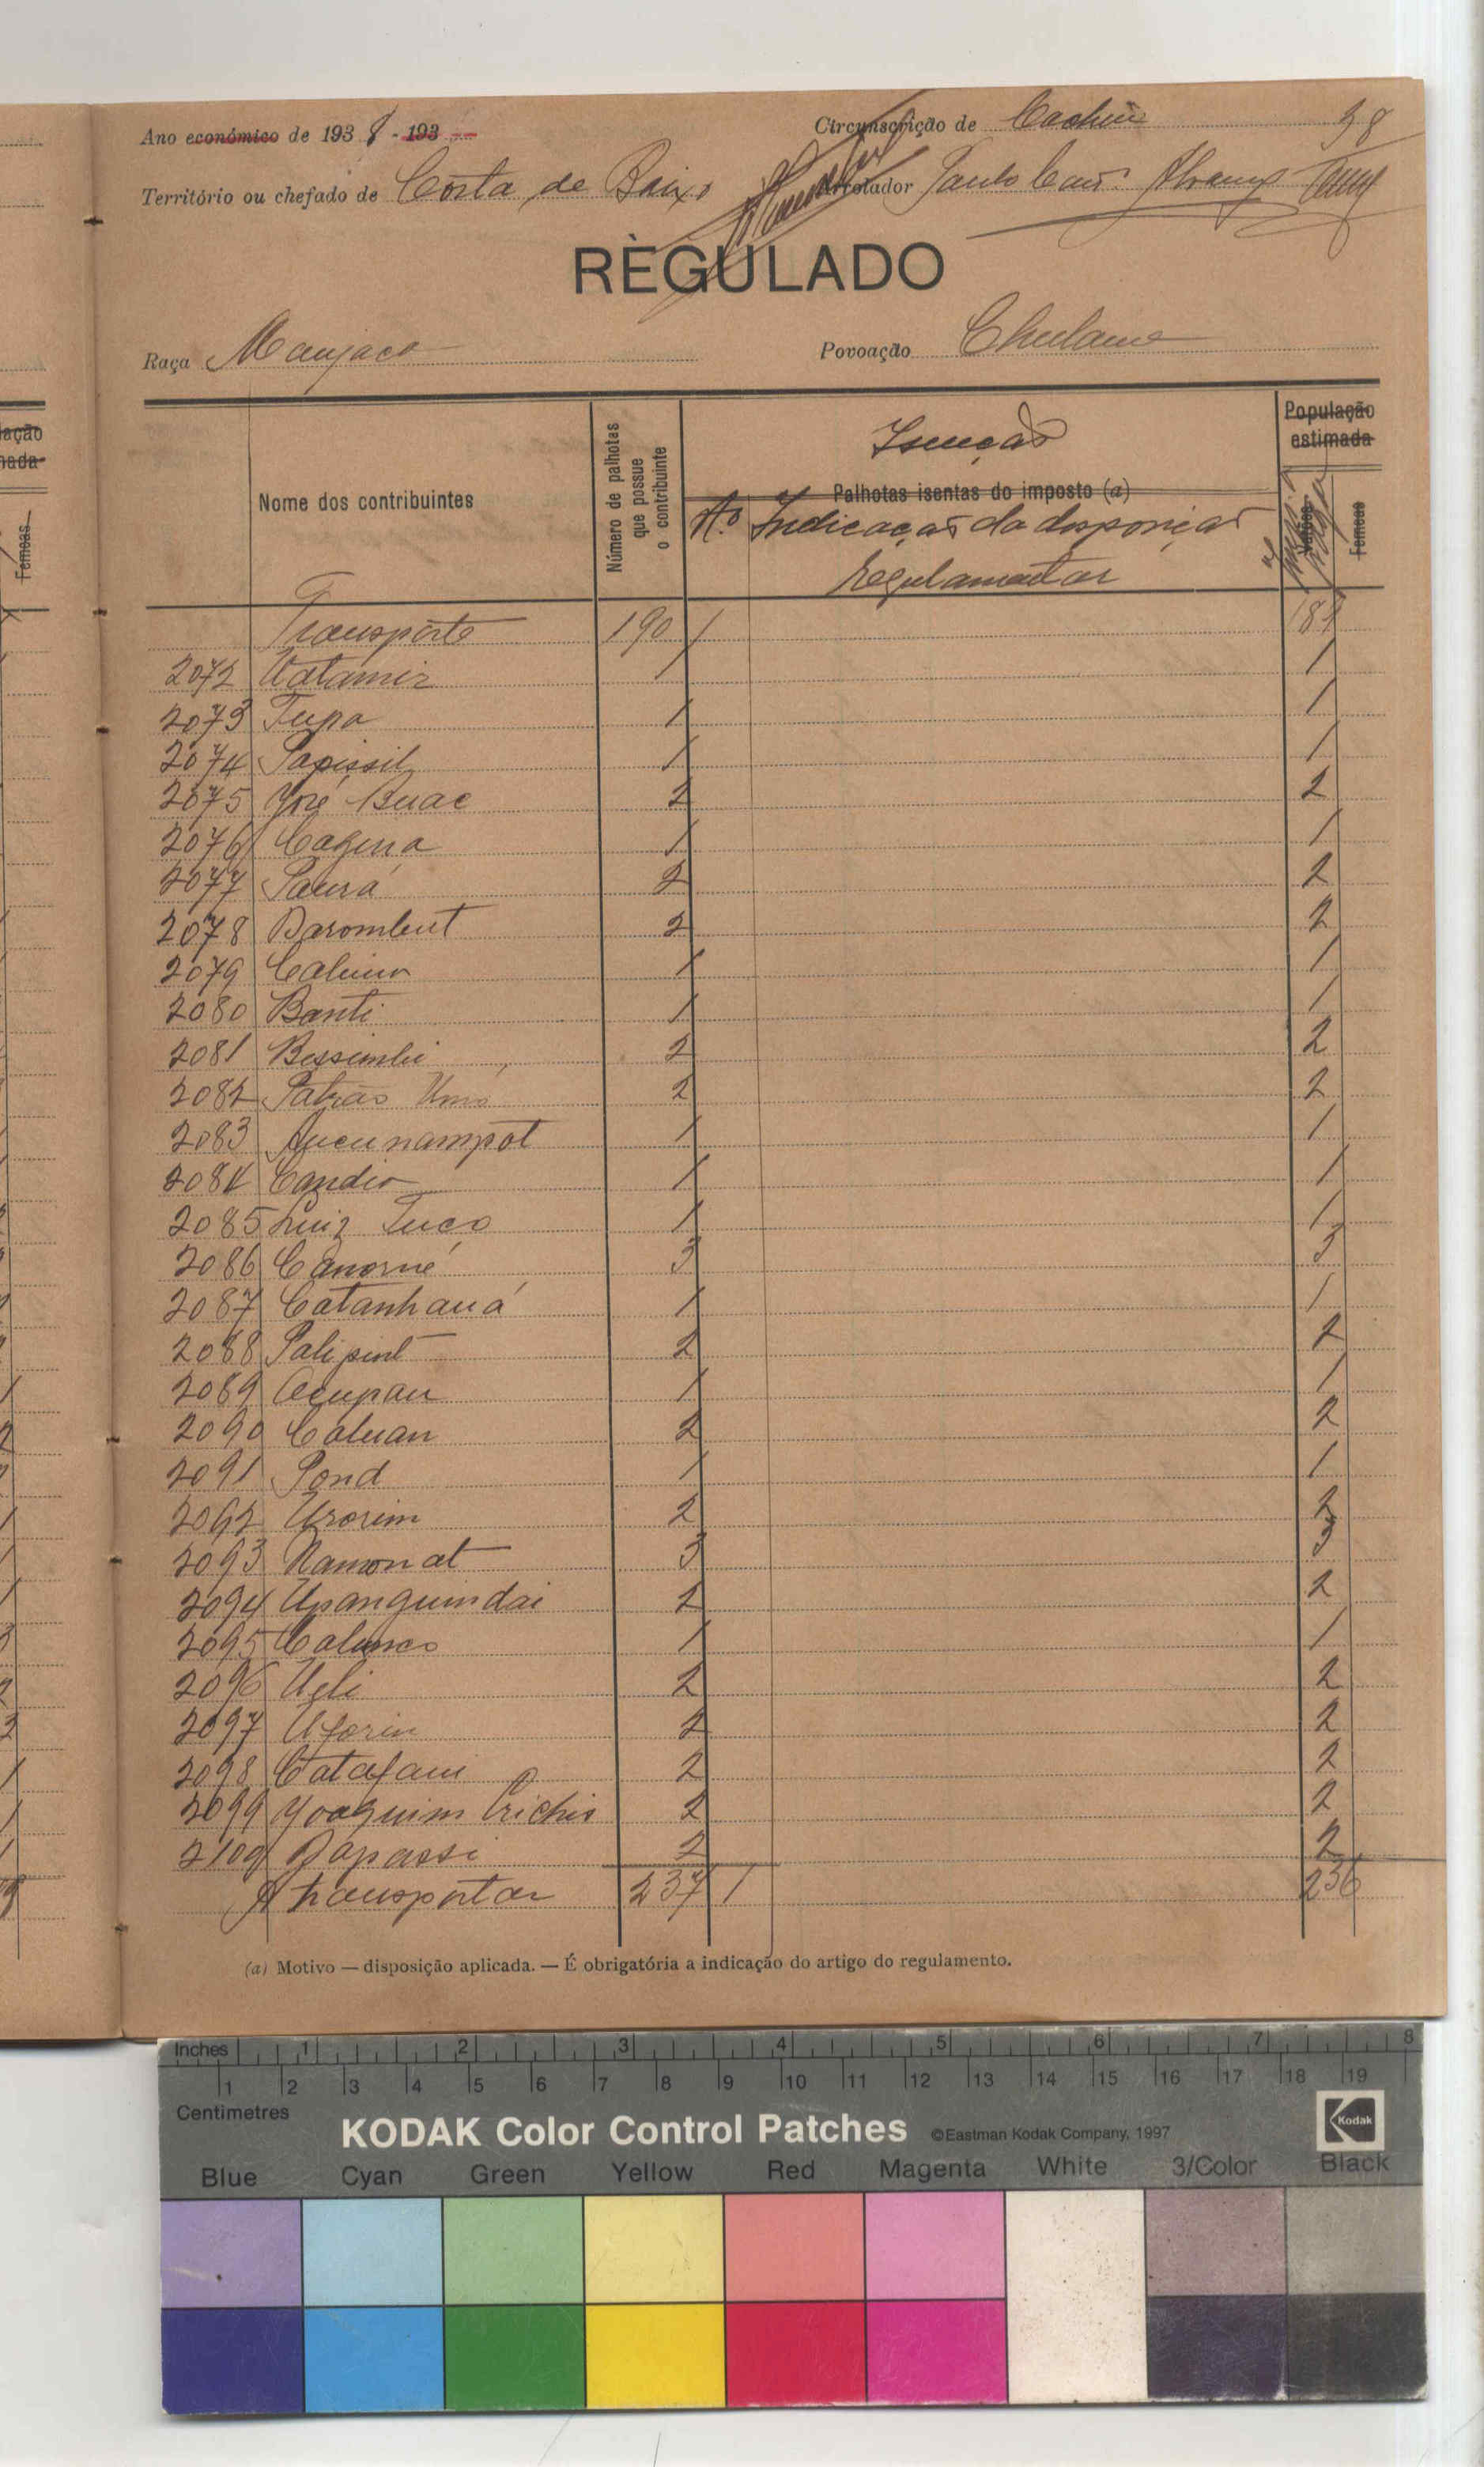 Ano económico de 193 8 - 193
Circunscrição de Cacheu 38
Território ou chefado de Costa de Baixo
Arrolador Paulo
RÈGULADO
Raça Manjaco
Povoação Chulame
Nome dos contribuintes
Número de palhotas que possue o contribuinte
Isenção
Palhotas isentas do imposto (a)
N.º Indicação da disposição
regulamentar
População estimada
Femeas
Transporte 190 1 189
2072 Uatamir 1 1
2073 Tupa 1 1
2074 Papissil 1 1
2075 José Buac 2 2
2076 Cagena 1 1
2077 Saurá 2 2
2078 Barombut 2 2
2079 1 1
2080 Banti 1 1
2081 Bessimbi 2 2
2082 Patrão 2 2
2083 Aucunampot 1 1
2084 Candio 1 1
2085 Luiz Tuco 1 1
2086 Canorné 3 3
2087 Catanhauá 1 1
2088 Palipint 2 2
2089 Acupau 1 1
2090 Caluan 2 2
2091 Pond 1 1
2092 Urorim 2 2
2093 Namonat 3 3
2094 Upanguindai 2 2
2095 1 1
2096 2 2
2097 Uforin 2 2
2098 Catafam 2 2
2099 Joaquim Crichis 2 2
2100 Papassi 2 2
A transportar 237 1 236
(a) Motivo — disposição aplicada. — É obrigatória a indicação do artigo do regulamento.
ação
nada
Femeas
Inches 1 2 3 4 5 6 7 8
1 2 3 4 5 6 7 8 9 10 11 12 13 14 15 16 17 18 19
Centimetres
KODAK Color Control Patches ©Eastman Kodak Company, 1997 Kodak
Blue Cyan Green Yellow Red Magenta White 3/Color Black